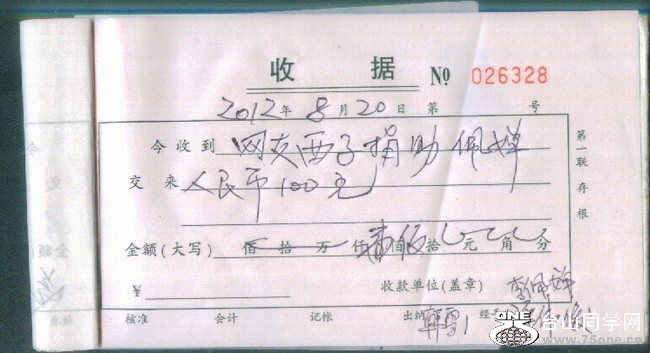 收 据 № 026328
2012年 8月 20日 第 号
今 收 到 网友西子捐助佩婵
交 来 人民币100元
金额(大写) 佰 拾 万 仟 壹佰 拾 元 角 分
¥ 收款单位(盖章)
核准 会计 记帐 出纳 经
第一联存根
金额
ONE 台山同学网
www.75one.cn